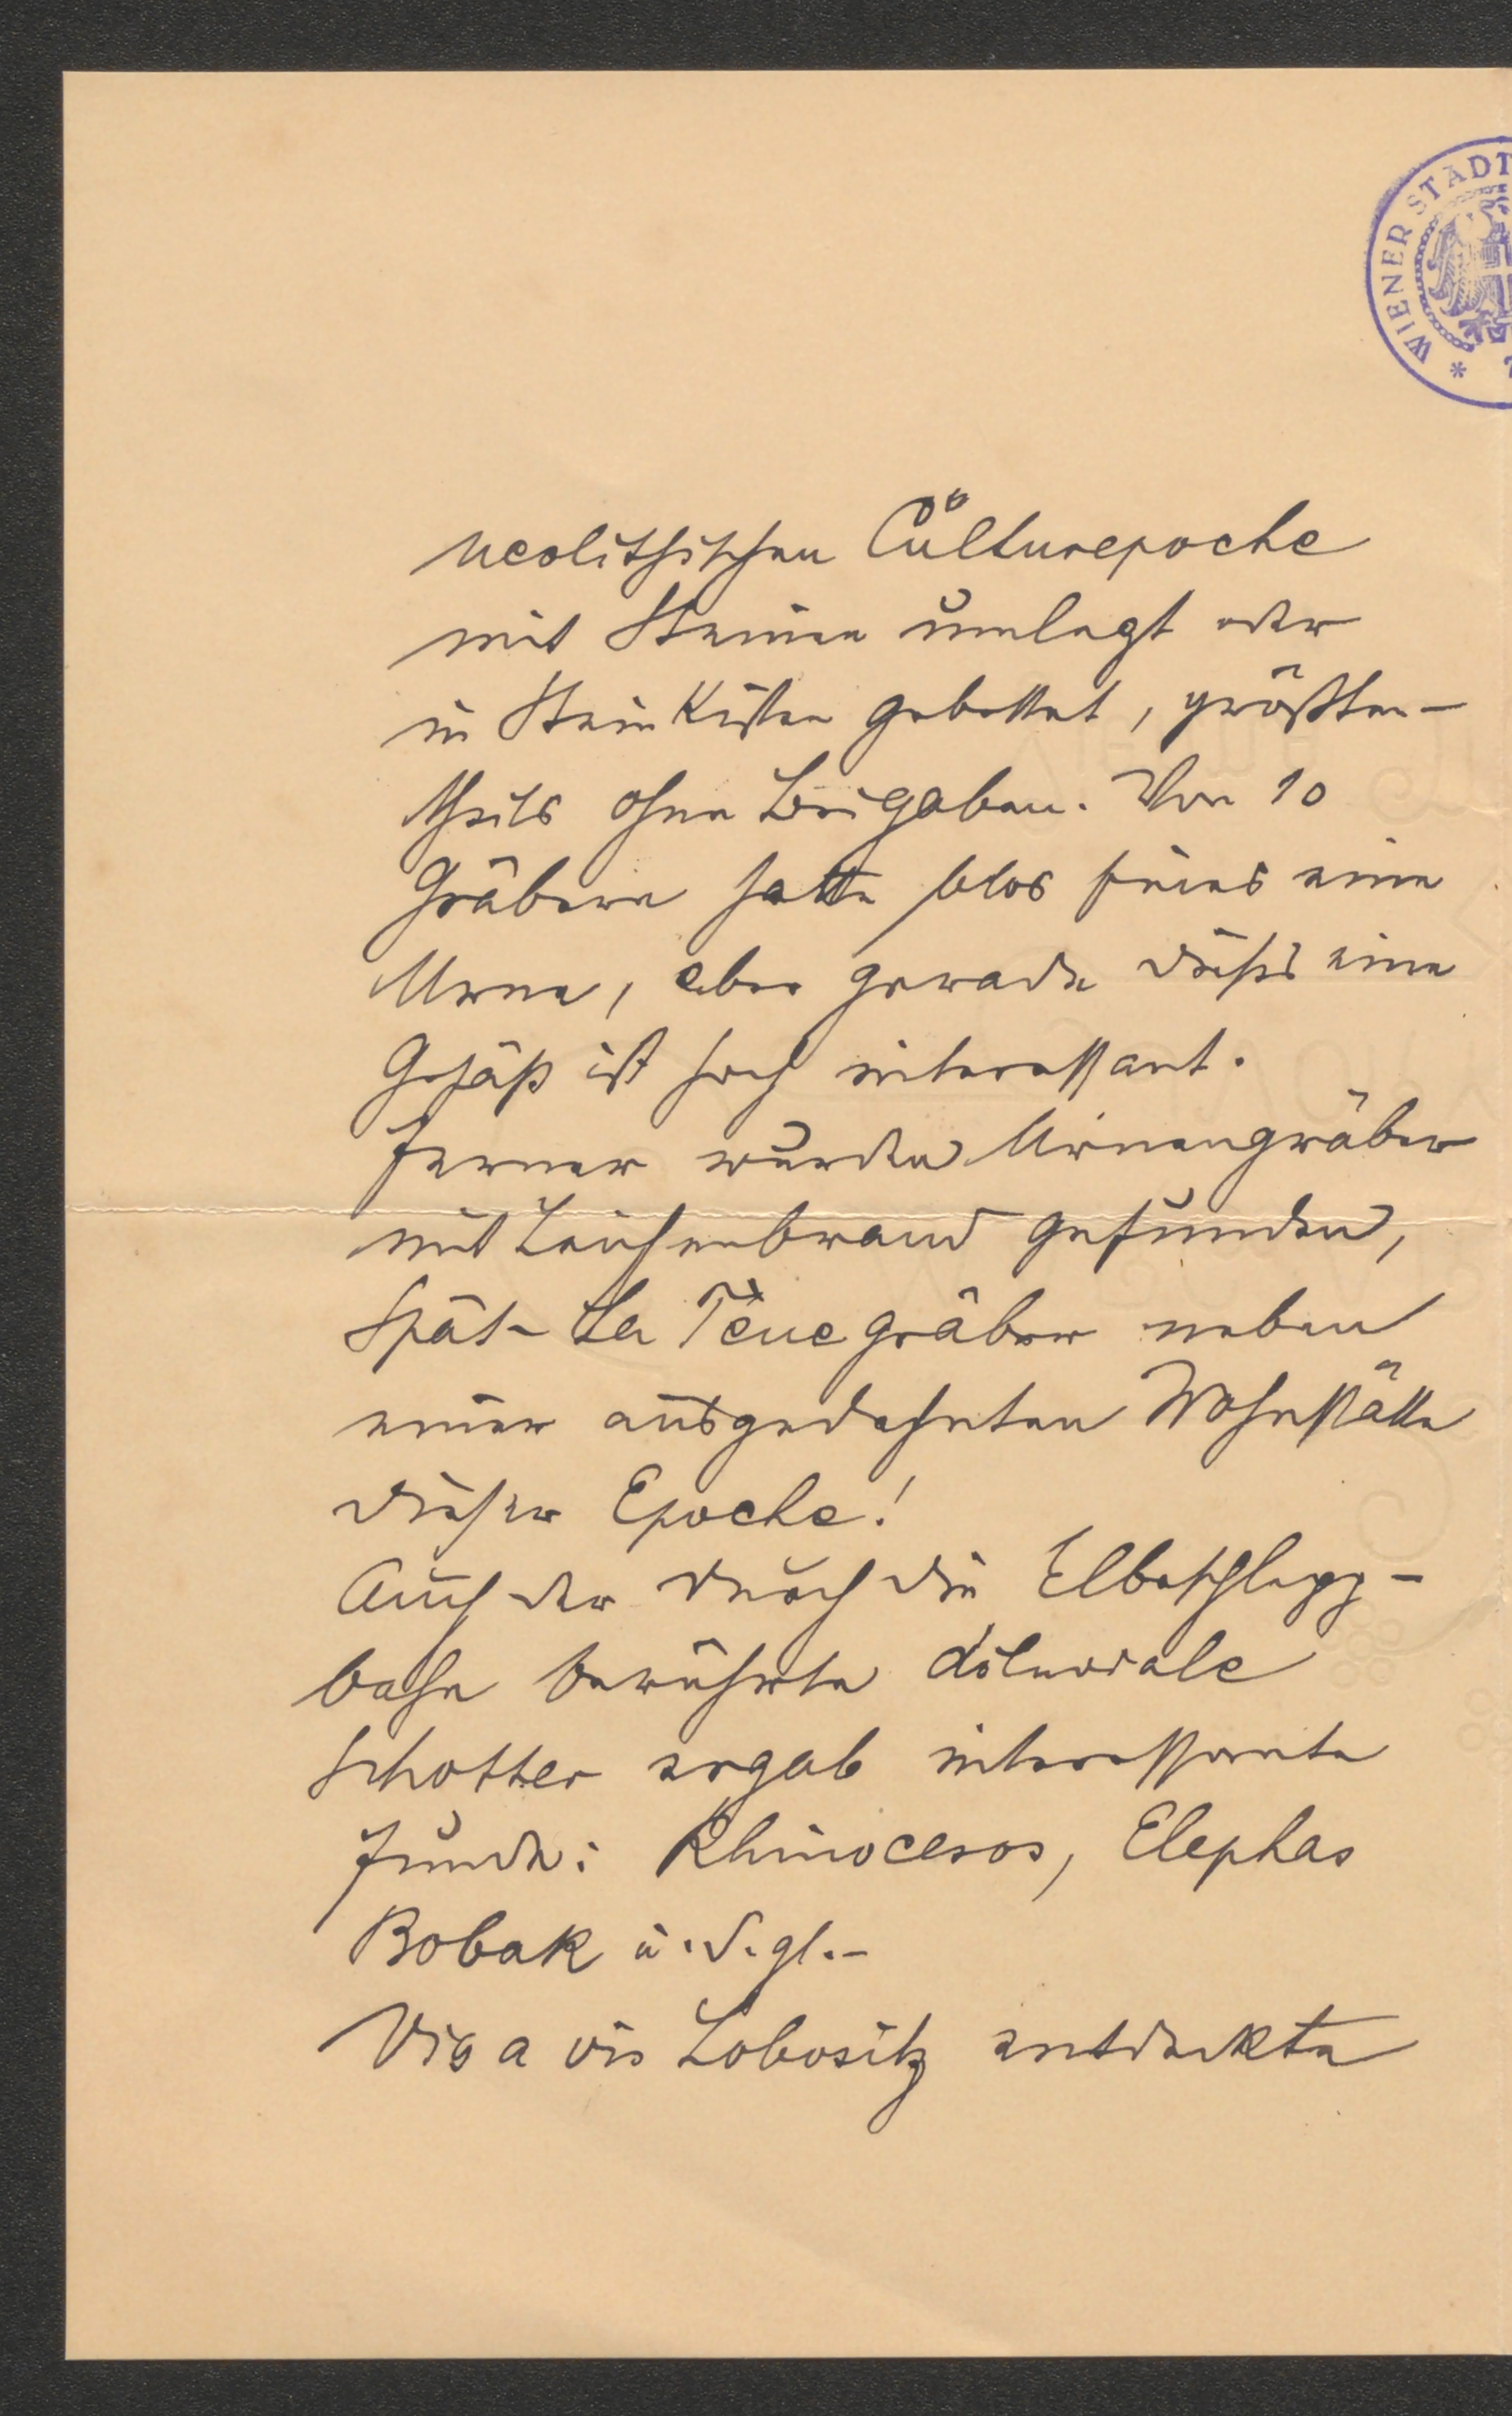 WIENER STADT
neolithischen Culturepoche
mit Steinen umlegt oder
in Steinkisten gebettet, größten-
theils ohne Beigaben. Von 10
Gräbern hatte blos eine
Urne, aber gerade dieses eine
Gefäß ist hoch interessant.
Ferner wurden Urnengräber
mit Leichenbrand gefunden,
Spät-La Tène gräber neben
einer ausgedehnten Wohnstätte
dieser Epoche!
Auch der durch die Elbeschlepp-
bahn berührte diluviale
Schotter ergab interessante
Funde: Rhinoceros, Elephas
Bobak u. d. gl. -
Vis a vis Lobositz entdeckte